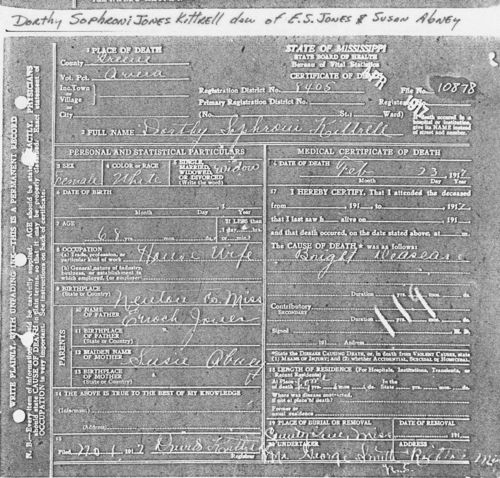 DORTHY SOPHRONI JONES KITTRELL dau of E.S. JONES & SUSAN ABNEY
1 PLACE OF DEATH
County Greene
Vot. Pct. Avera
Inc. Town
or
Village
City
STATE OF MISSISSIPPI
STATE BOARD OF HEALTH
Bureau of Vital Statistics
CERTIFICATE OF DEATH
Registration District No. 8405
File No. 10878
Primary Registration District No.
Registered
(No. St.
(If death occurred in a hospital or institution, give its NAME instead of street and number.)
2 FULL NAME Dorthy Sophroni Kittrell
PERSONAL AND STATISTICAL PARTICULARS
3 SEX
Female
4 COLOR OR RACE
White
5 SINGLE, MARRIED, WIDOWED, OR DIVORCED
(Write the word)
Widow
6 DATE OF BIRTH
Month Day Year
7 AGE
68
If LESS than
1 day, hrs.
or min.?
8 OCCUPATION
(a) Trade, profession, or particular kind of work
House Wife
(b) General nature of industry, business, or establishment which employed, (or employer)
9 BIRTHPLACE
(State or Country)
Newton Co Miss
10 NAME OF FATHER
Enoch Jones
PARENTS
11 BIRTHPLACE OF FATHER
(State or Country)
12 MAIDEN NAME OF MOTHER
Susie Abney
13 BIRTHPLACE OF MOTHER
(State or Country)
14 THE ABOVE IS TRUE TO THE BEST OF MY KNOWLEDGE
(Informant)
(Address)
15
Filed Nov 1 1912 David Kittrell
Registrar
MEDICAL CERTIFICATE OF DEATH
16 DATE OF DEATH
Feb 23 1912
Month Day Year
17 I HEREBY CERTIFY, That I attended the deceased
from 191 to 191
that I last saw h alive on 191
and that death occurred, on the date stated above, at m.
The CAUSE OF DEATH* was as follows:
Bright Desease
Duration yrs. mos. ds.
119
Contributory
SECONDARY
Duration yrs. mos. ds.
Signed M. D.
191 (Address)
*State the DISEASE CAUSING DEATH, or, in death from VIOLENT CAUSES, state (1) MEANS OF INJURY; and (2) whether ACCIDENTAL, SUICIDAL or HOMICIDAL.
18 LENGTH OF RESIDENCE (For Hospitals, Institutions, Transients, or Recent Residents)
At Place of death yrs. mos. ds. In the State yrs. mos. ds.
Where was disease contracted, if not at place of death?
Former or usual residence
19 PLACE OF BURIAL OR REMOVAL
DATE OF REMOVAL
191
20 UNDERTAKER
ADDRESS
Mr George Smith
WRITE PLAINLY, WITH UNFADING INK—THIS IS A PERMANENT RECORD